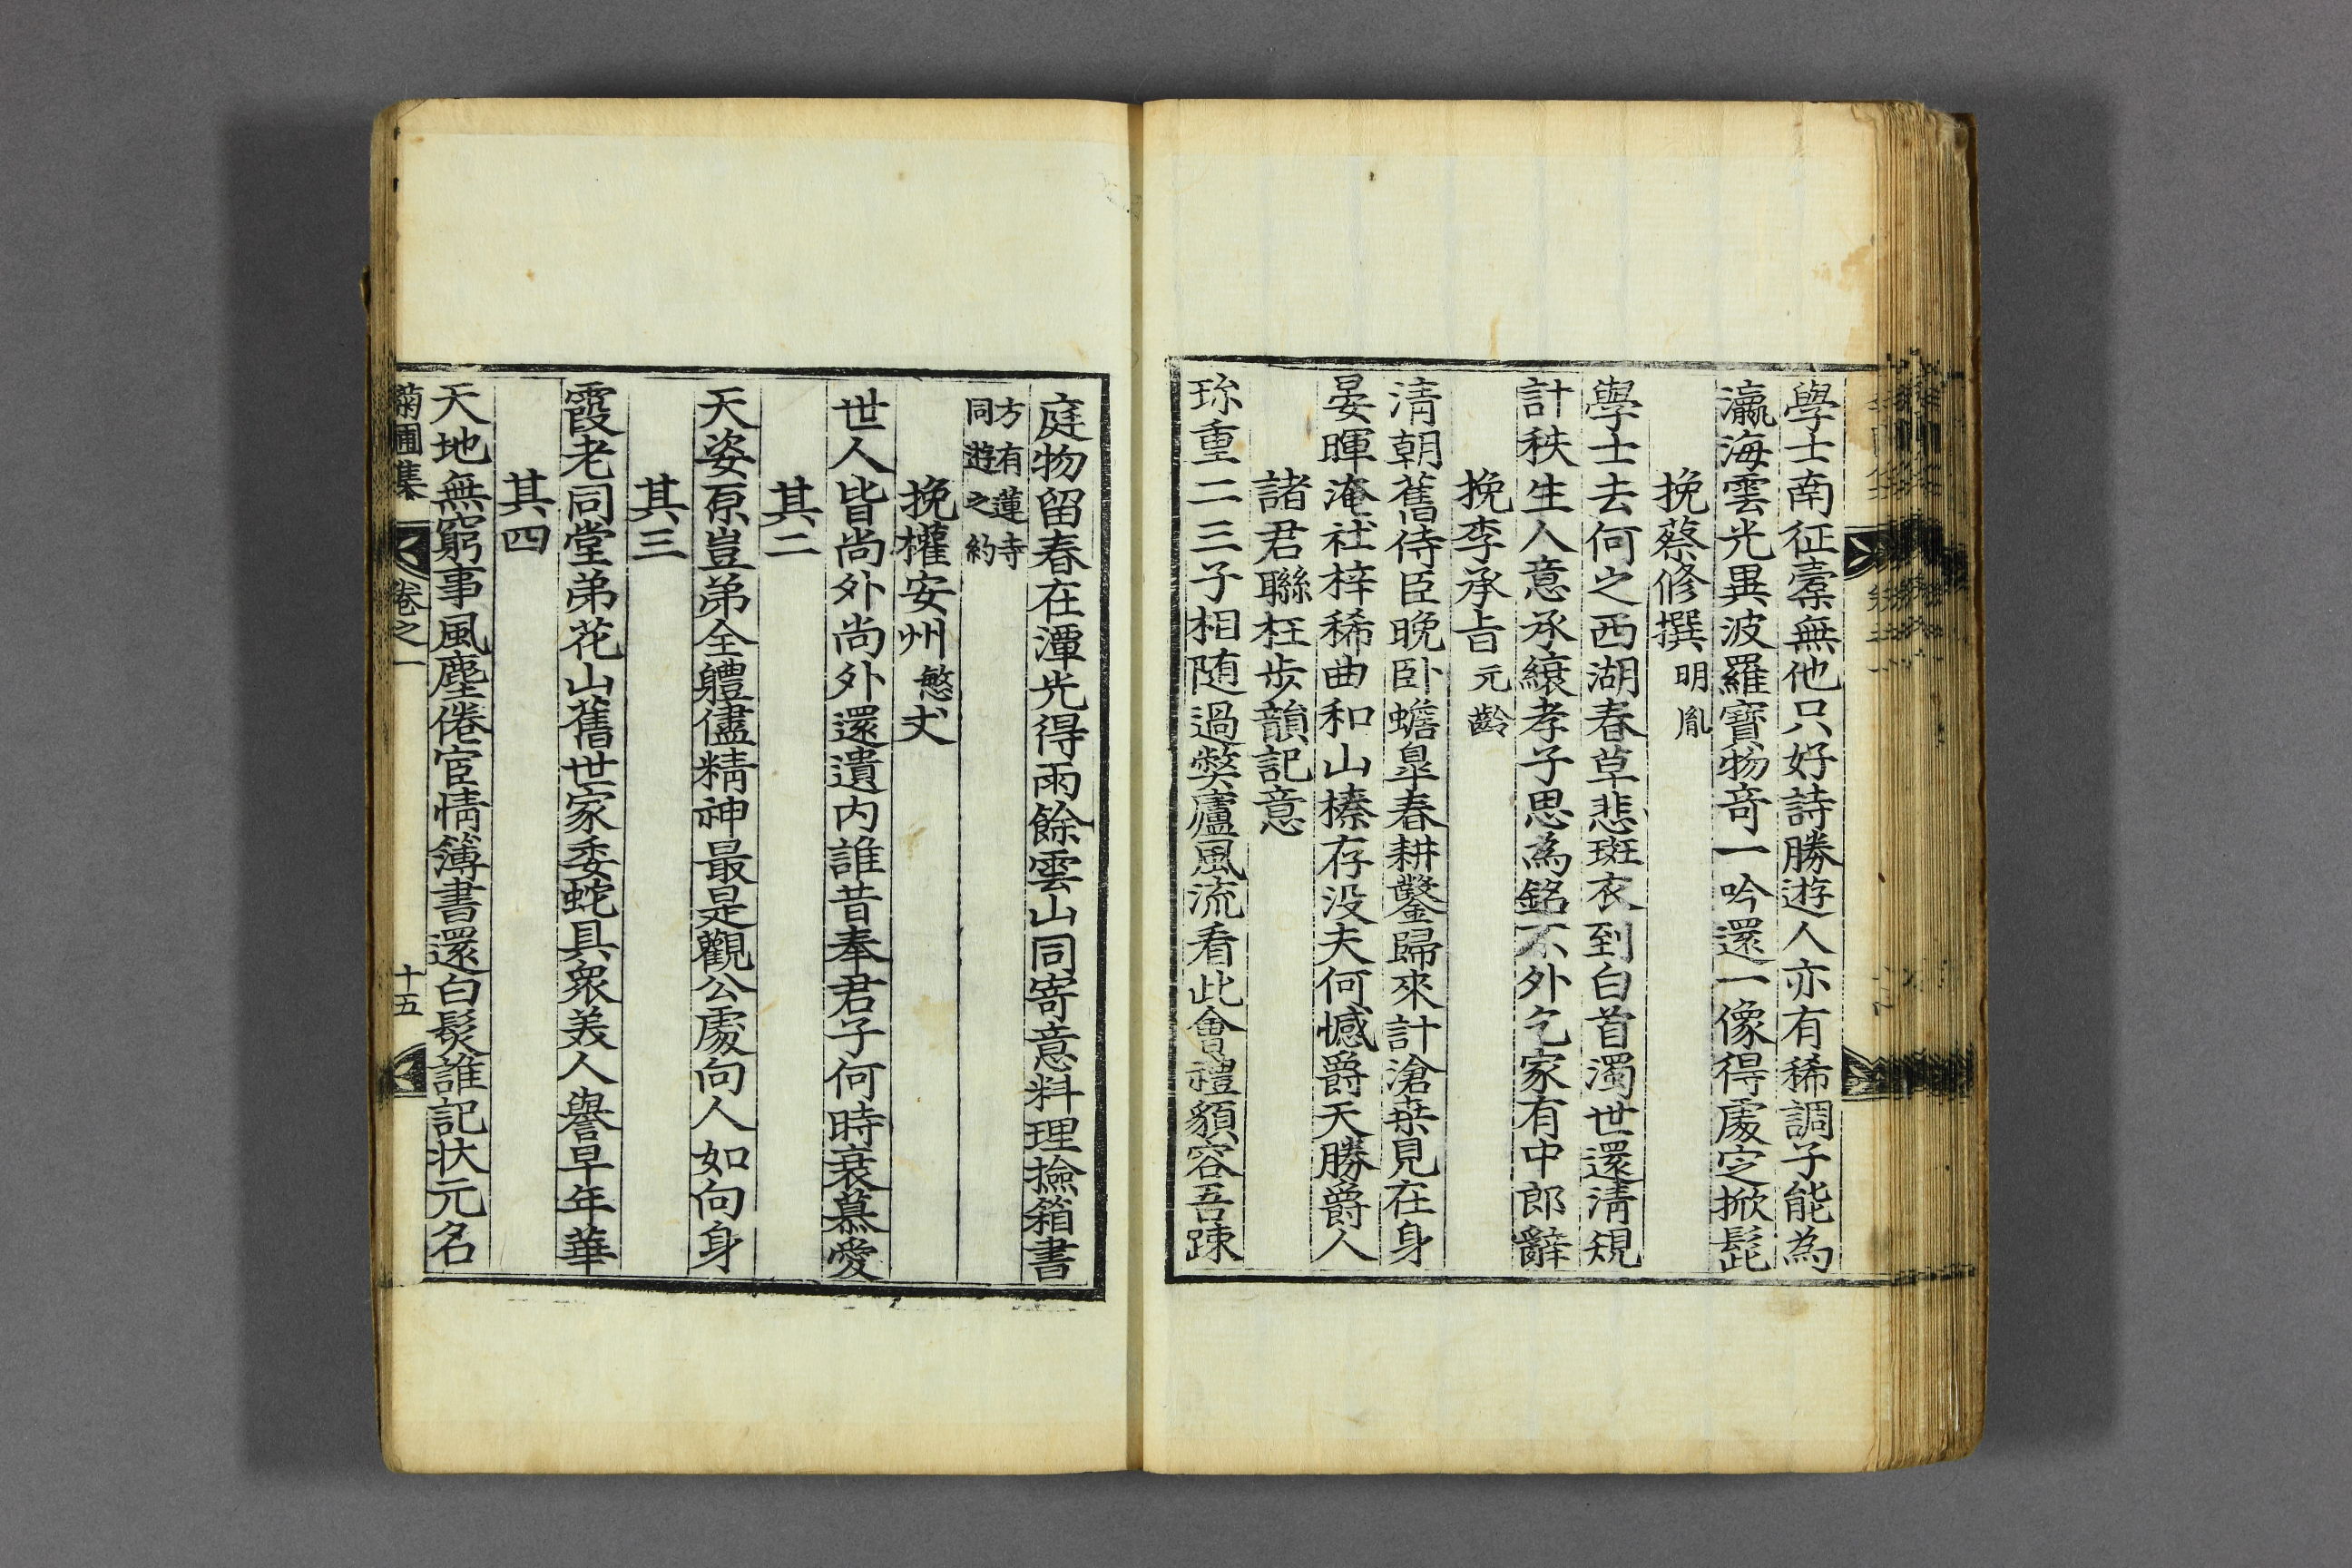 學士南征槖無他只好詩勝遊人亦有稀調子能為
瀛海雲光異波羅寶物竒一吟還一像得處定掀髭
挽蔡修撰明胤
學士去何之西湖春草悲斑衣到白首濁世還淸規
計秩生人意承縗孝子思為銘不外乞家有中郎辭
挽李承旨元齡
淸朝舊侍臣晩卧蟾皐春耕鑿歸來計滄桒見在身
晏暉淹社梓稀曲和山榛存没夫何憾爵天勝爵人
諸君聯枉步韻記意
珎重二三子相随過獘廬風流看此會禮貌容吾踈
庭物留春在潭光得雨餘雲山同寄意料理撿箱書
方有蓮寺
同遊之約
挽權安州慜丈
世人皆尚外尚外還遺内誰昔奉君子何時衰慕愛
其二
天姿原豈弟全軆儘精神最是觀公處向人如向身
其三
霞老同堂弟花山舊世家委蛇具衆羙人譽早年華
其四
天地無窮事風塵倦宦情簿書還白髮誰記状元名
菊圃集 卷之一 十五